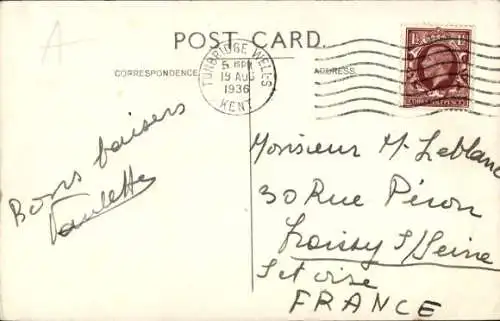 A
POST CARD.
CORRESPONDENCE
ADDRESS
TUNBRIDGE WELLS
5 PM
19 AUG
1936
KENT
1½
Bons baisers
Paulette
Monsieur M. Leblanc
30 Rue Péron
Croissy s/Seine
Set oise
FRANCE